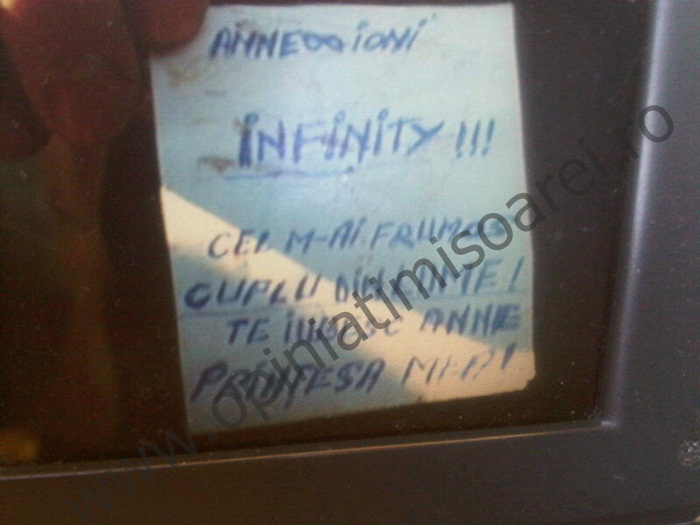 ANNE∞IONI
INFINITY!!!
CEL M-AI FRUMOS
CUPLU DIN LUME!
TE IUBESC ANNE
PRINȚESA MEA!
www.opiniatimisoarei.ro